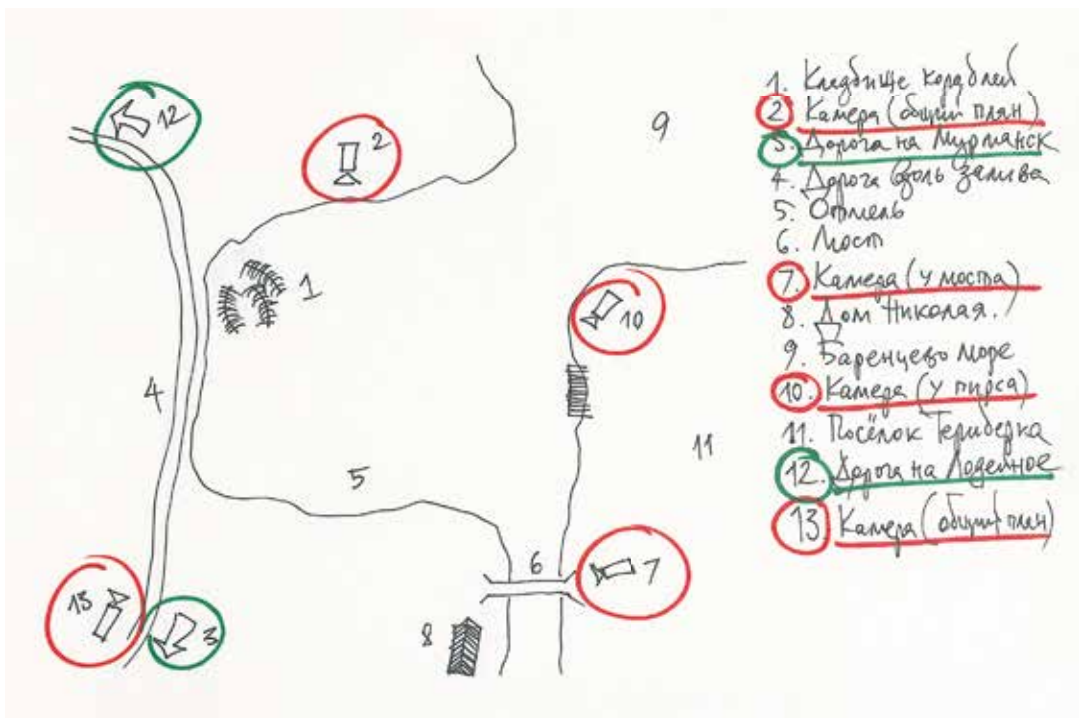 12
2
9
1
10
4
11
5
6
7
13
3
8
1. Кладбище кораблей
2 Камера (общий план)
3. Дорога на Мурманск
4. Дорога вдоль залива
5. Отмель
6. Мост
7. Камера (у моста)
8. Дом Николая.
9. Баренцево море
10. Камера (у пирса)
11. Посёлок Териберка
12. Дорога на Лодейное
13 Камера (общий план)